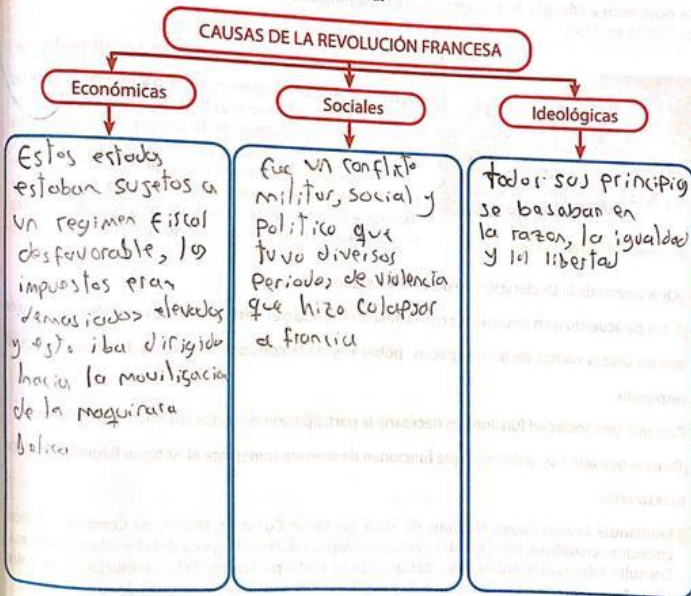 CAUSAS DE LA REVOLUCIÓN FRANCESA
Económicas
Sociales
Ideológicas
Estos estados
estaban sujetos a
un regimen fiscal
desfavorable, los
impuestos eran
demasiados elevados
y esto iba dirigido
hacia la movilización
de la maquinara
belica
fue un conflicto
militar, social y
politico que
tuvo diversos
periodos de violencia
que hizo colapsar
a francia
todos sus principios
se basaban en
la razon, la igualdad
y la libertad